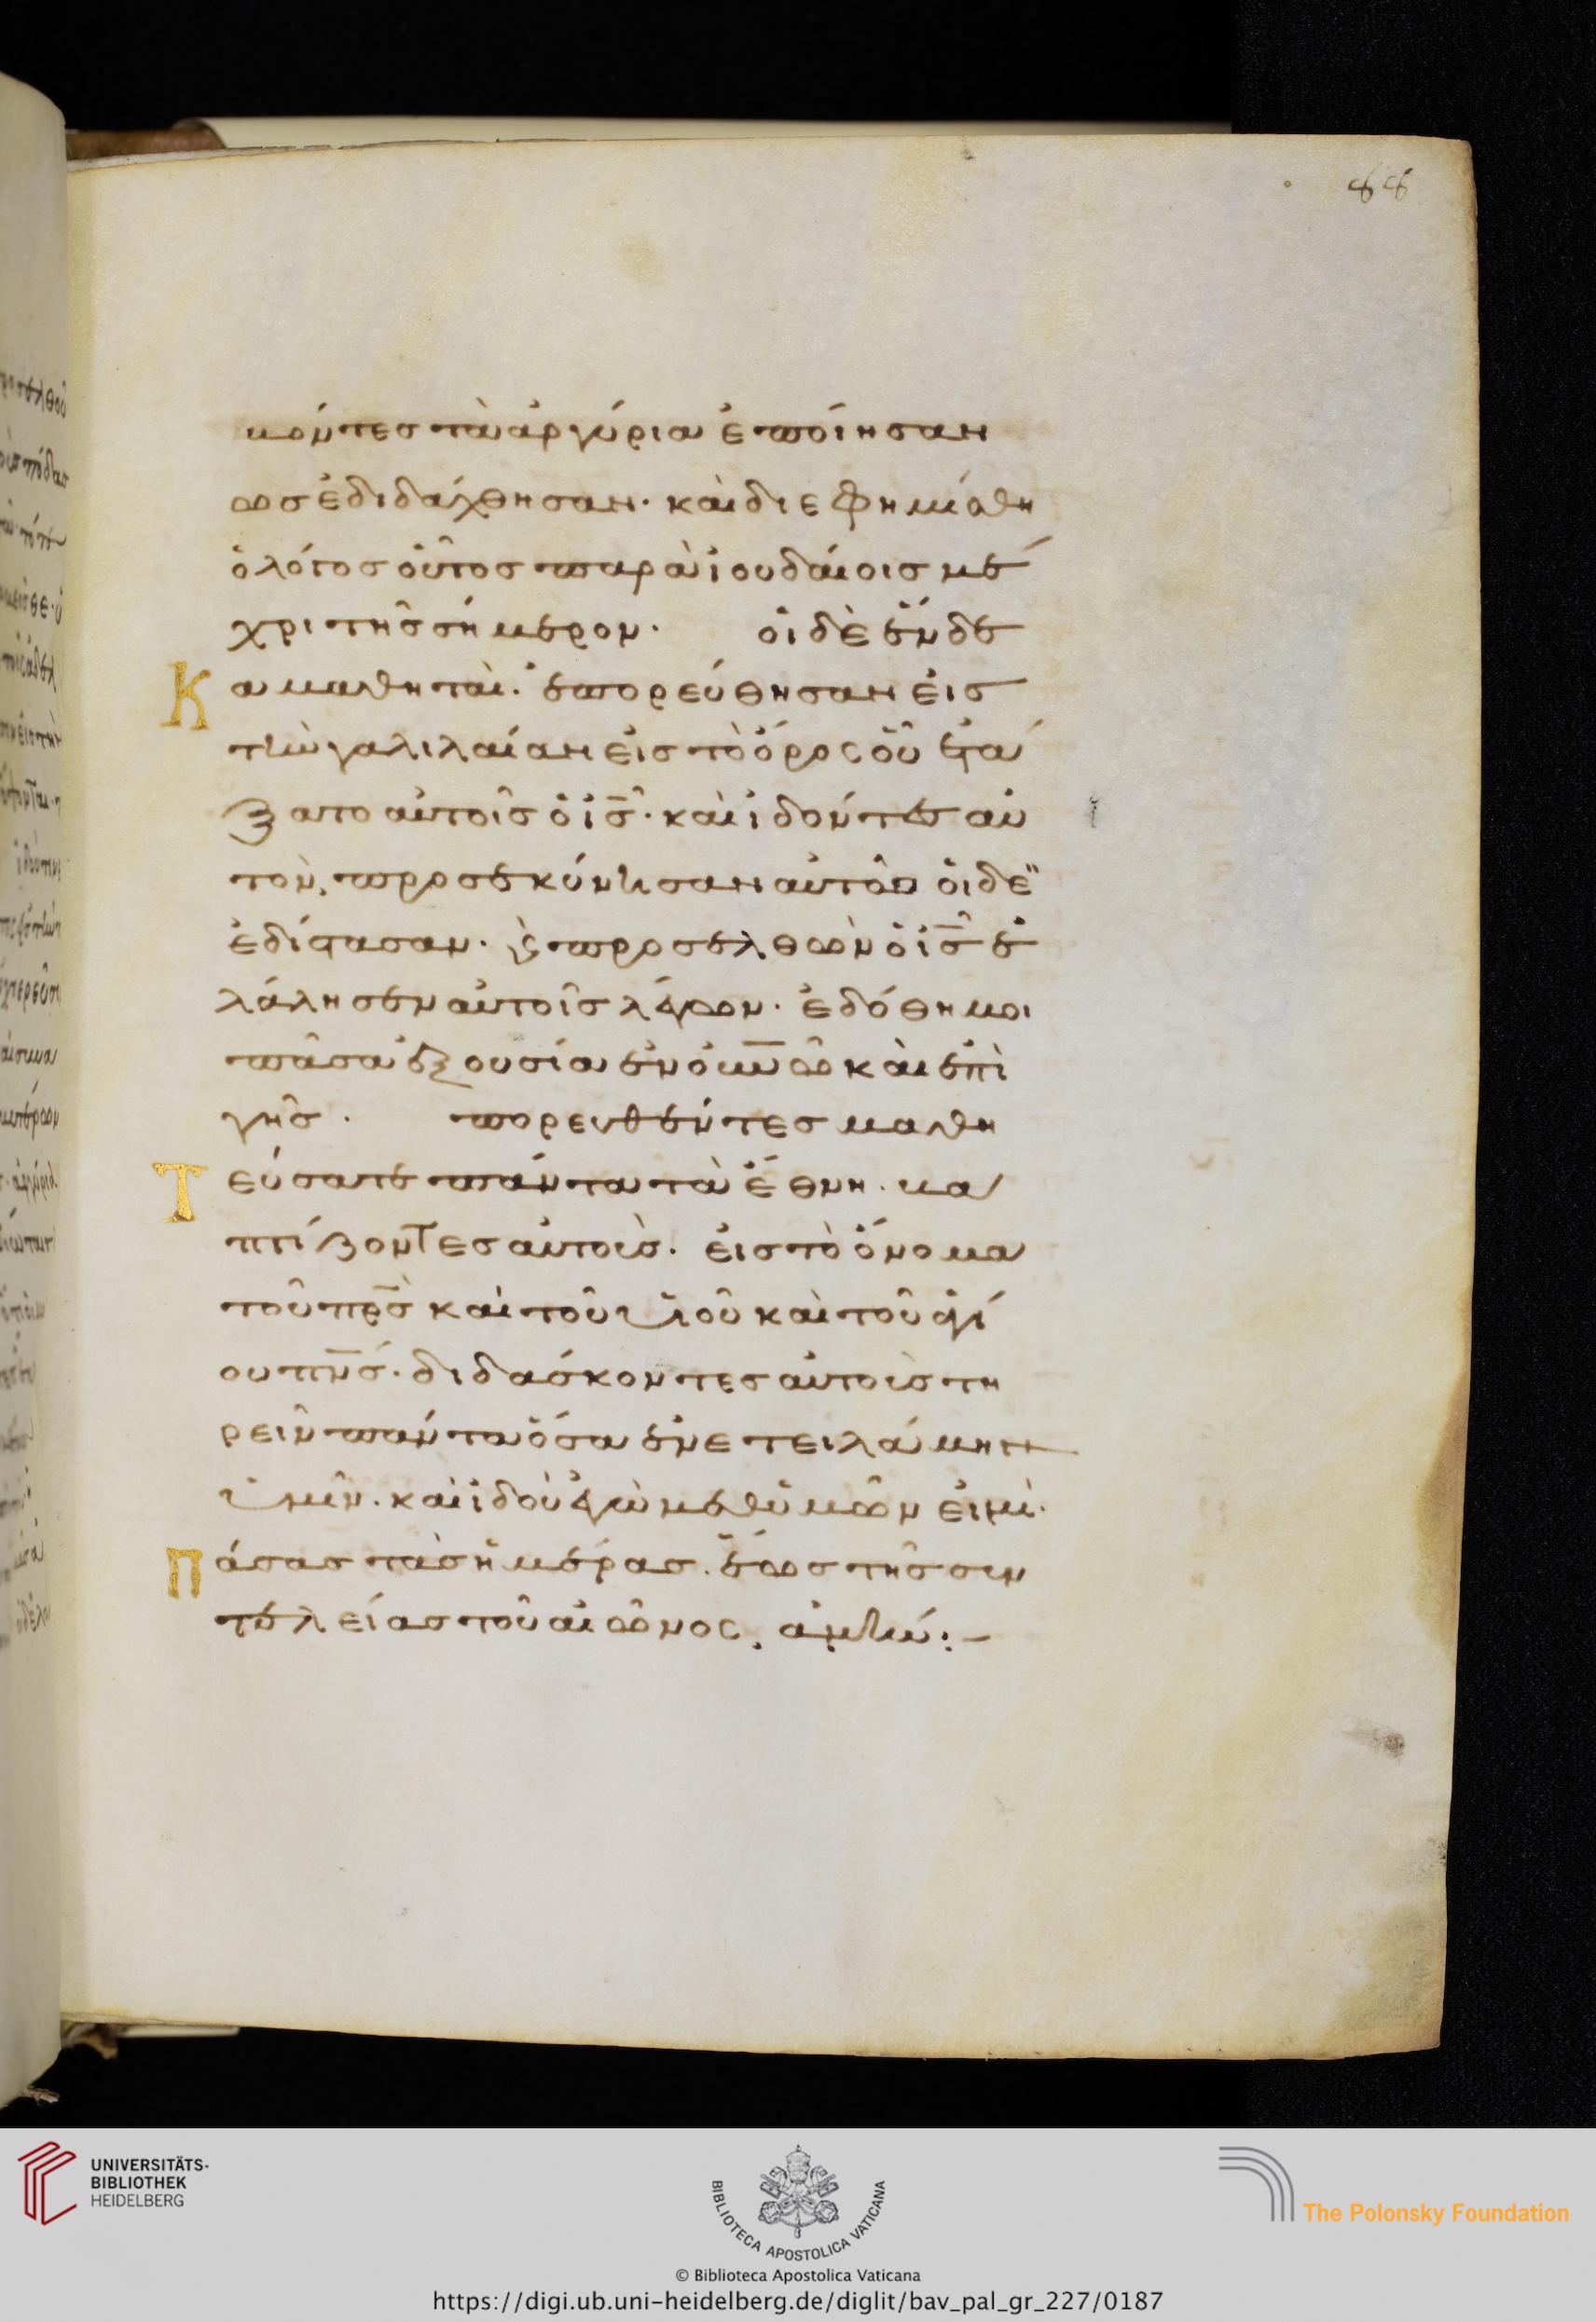 88
κόντες τὰ ἀργύρια ἐποίησαν
ὡς ἐδιδάχθησαν· καὶ διεφημίσθη
ὁ λόγος οὗτος παρὰ ἰουδαίοις μέ
χρι τῆς σήμερον· οἱ δὲ ἕνδε
Κ α μαθηταὶ· ἐπορεύθησαν εἰς
τὴν γαλιλαίαν εἰς τὸ ὄρος οὗ ἐτά
ξατο αὐτοῖς ὁ ι̅ς̅· καὶ ἰδόντες αὐ
τὸν, προσεκύνησαν αὐτῶ οἱ δὲ
ἐδίστασαν· ϗ προσελθὼν ὁ ι̅ς̅ ἐ
λάλησεν αὐτοῖς λέγων· ἐδόθη μοι
πᾶσα ἐξουσία ἐν ο̅υ̅ν̅ῶ καὶ ἐπὶ
γῆς· πορευθέντες μαθη
Τ εύσατε πάντα τὰ ἔθνη· βα
πτίζοντες αὐτοὺς· εἰς τὸ ὄνομα
τοῦ π̅ρ̅ς̅ καὶ τοῦ υἱοῦ καὶ τοῦ ἁγί
ου π̅ν̅ς̅· διδάσκοντες αὐτοὺς τη
ρεῖν πάντα ὅσα ἐνετειλάμην
ὑμῖν· καὶ ἰδοὺ ἐγὼ μεθ' ὑμῶν εἰμὶ·
Π άσας τὰς ἡμέρας· ἕως τῆς συν
τελείας τοῦ αἰῶνος, ἀμήν:–
UNIVERSITÄTS-
BIBLIOTHEK
HEIDELBERG
BIBLIOTECA APOSTOLICA VATICANA
The Polonsky Foundation
© Biblioteca Apostolica Vaticana
https://digi.ub.uni-heidelberg.de/diglit/bav_pal_gr_227/0187